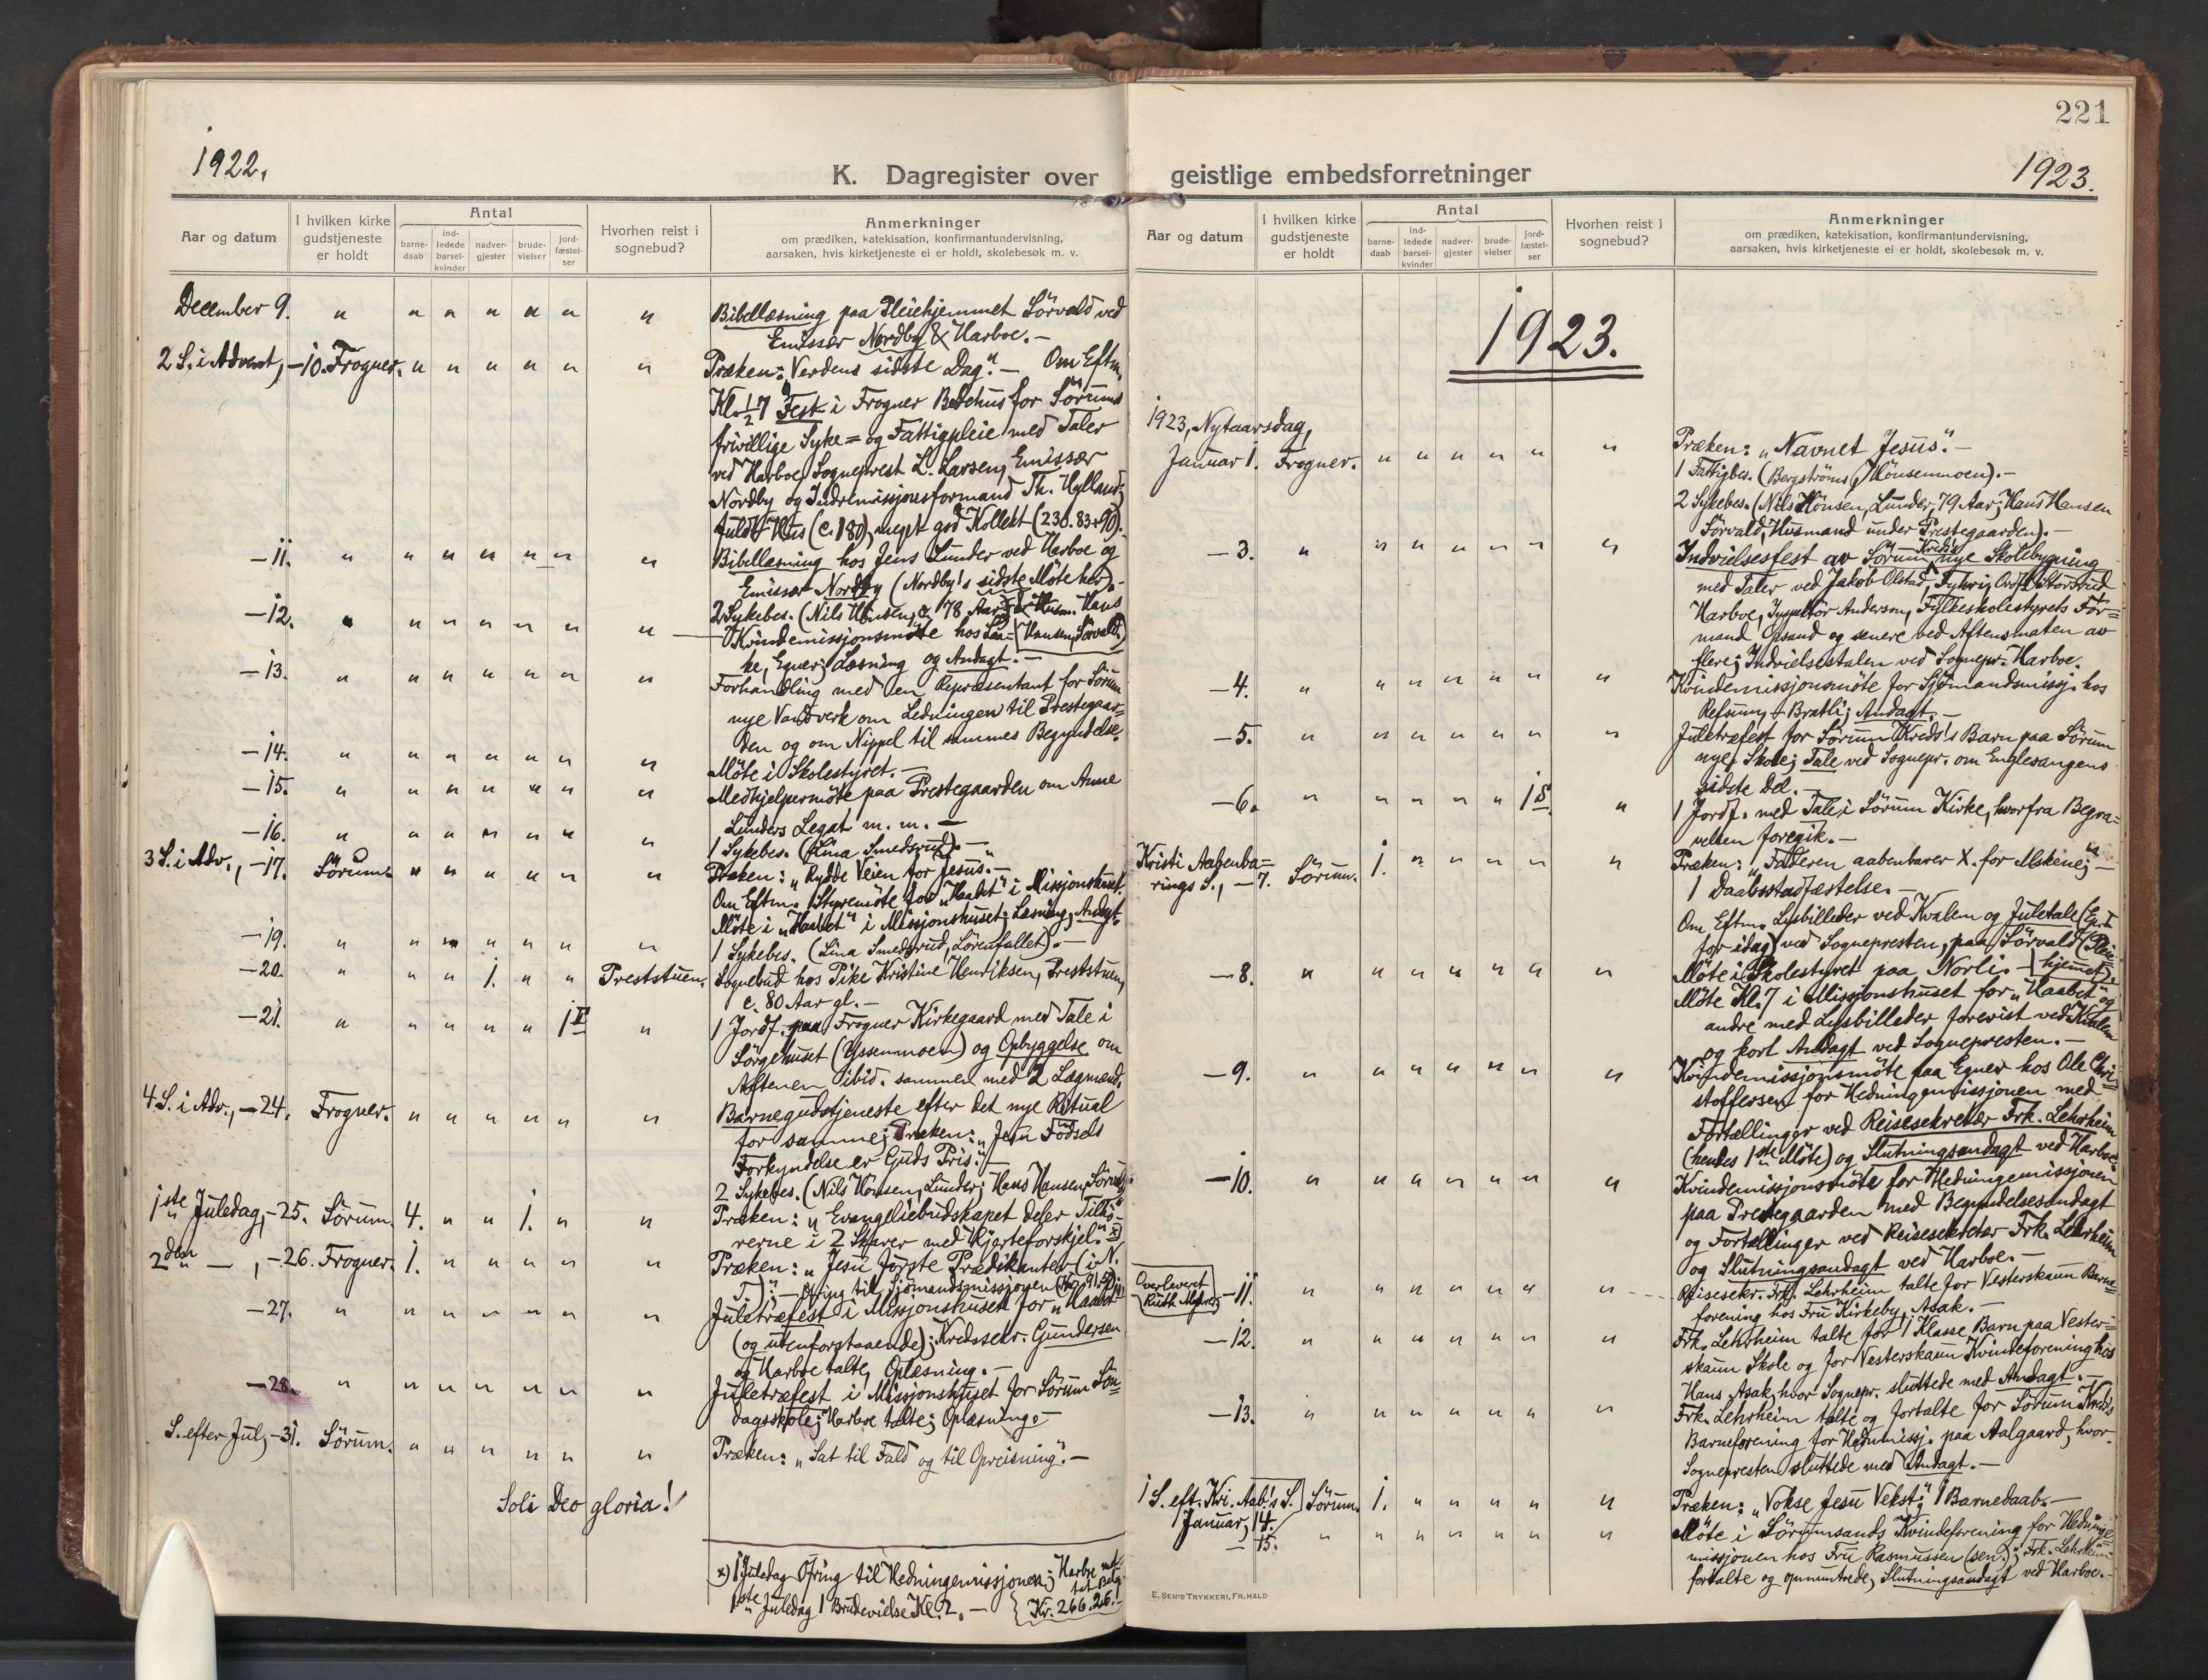 221
1922.
1923.
K. Dagregister over
geistlige embedsforretninger
Aar og datum
I hvilken kirke gudstjeneste er holdt
Antal
barne-daab
ind-ledede barsel-kvinder
nadver-gjester
brude-vielser
jord-fæstel-ser
Hvorhen reist i sognebud?
Anmerkninger
om prædiken, katekisation, konfirmantundervisning,
aarsaken, hvis kirketjeneste ei er holdt, skolebesøk m. v.
December 9. " " " " " " " Bibellæsning paa Pleiehjemmet Sörvald ved
Emissær Nordby & Harboe. —
2 S. i Advent, —10. Frogner. " " " " " " Præken: "Verdens sidste Dag". — Om Eftm.
Kl. ½7 Fest i Frogner Bedehus for Sörums
frivillige Syke= og Fattigpleie med Taler
ved Harboe, Sogneprest L. Larsen, Emissær
Nordby og Indremissjonsformand Th. Hylland;
fuldt Hus (c. 180), meget god Kollekt (230.83+90).
—11. " " " " " " " Bibellæsning hos Jens Lunder ved Harboe og
Emissær Nordby (Nordby's sidste Möte her). —
—12. " " " " " " " 2 Sykebes. (Nils Hönsen, 78 Aar; Husm. Hans
Hansen, Sörvald.)
Kvindemissjonsmöte hos
Egner; Læsning og Andagt. —
—13. " " " " " " " Forhandling med en Repræsentant for Sörum
nye Vandverk om Ledningen til Prestegaar=
den og om Nippel til sammes Begyndelse.
—14. " " " " " " " Möte i Skolestyret. —
—15. " " " " " " " Medhjelpermöte paa Prestegaarden om Anne
Lunders Legat m. m. —
—16. " " " " " " " 1 Sykebes. (Lina Smedsrud). —
3 S. i Adv., —17. Sörum. " " " " " " Præken: "Rydde Veien for Jesus". —
Om Eftm. Styremöte for "Haabet" i Missjonshuset.
Möte i "Haabet" i Missjonshuset; Læsning, Andagt.
—19. " " " " " " " 1 Sykebes. (Lina Smedsrud, Sörenfallet). —
—20. " " " 1. " " Preststuen. Sognebud hos Pike Kristine Henriksen, Preststuen,
c. 80 Aar gl. —
—21. " " " " " 1 I " 1 Jordf. paa Frogner Kirkegaard med Tale i
Sörgehuset (Yssenmoen) og Opbyggelse om
Aftenen ibid. sammen med 2 Lægmænd.
4 S. i Adv., —24. Frogner. " " " " " " Barnegudstjeneste efter det nye Ritual
for samme; Præken: "Jesu Födsels
Forkyndelse er Guds Pris." —
2 Sykebes. (Nils Hönsen, Lunder; Hans Hansen, Sörvald).
1ste Juledag, —25. Sörum. 4. " " 1. " " Præken: "Evangeliebudskapet deler Tilhö-
rerne i 2 Skarer med Hjerteforskjel." x)
2den " — , —26. Frogner. 1. " " " " " Præken: "Jesu förste Prædikanter (i N.
T.)". — Ofring til Sjömandsmissjonen
—27. " " " " " " " Juletræfest i Missjonshuset for "Haabet"
(og utenforstaaende); Kredssekr. Gundersen
og Harboe talte, Oplæsning. —
—28. " " " " " " " Juletræfest i Missjonshuset for Sörum Sön=
dagsskole; Harboe talte; Oplæsning. —
S. efter Jul, —31. Sörum. " " " " " " Præken: "Sat til Fald og til Opreisning". —
Soli Deo gloria!
x) 1 Juledag Ofring til Hedningemissjonen; Harboe
1ste Juledag 1 Brudevielse Kl. 2. — Kr. 266.26. —
Aar og datum
I hvilken kirke gudstjeneste er holdt
Antal
barne-daab
ind-ledede barsel-kvinder
nadver-gjester
brude-vielser
jord-fæstel-ser
Hvorhen reist i sognebud?
Anmerkninger
om prædiken, katekisation, konfirmantundervisning,
aarsaken, hvis kirketjeneste ei er holdt, skolebesøk m. v.
1923.
1923, Nytaarsdag,
Januar 1. Frogner. " " " " " " Præken: "Navnet Jesus". —
1 Fattigbes. (Bergströms, Mönsenmoen). —
2 Sykebes. (Nils Hönsen, Lunder, 79 Aar; Hans Hansen
Sörvald, Husmand under Prestegaarden). —
—3. " " " " " " " Indvielsesfest av Sörum Kreds's nye Skolebygning
med Taler ved Jakob Olstad,
Harboe, Inspektör Andersen, Fylkesskolestyrets For=
mand Opsand og senere ved Aftensmaten av
flere; Indvielsestalen ved Sognepr. Harboe.
—4. " " " " " " " Kvindemissjonsmöte for Sjömandsmissj. hos
Refsum, Bratli; Andagt. —
—5. " " " " " " " Juletræfest for Sörum Kreds's Barn paa Sörum
nye Skole; Tale ved Sognepr. om Englesangens
sidste Del. —
—6. " " " " " 1 S. " 1 Jordf. med Tale i Sörum Kirke, hvorfra Begra=
velsen foregik. —
Kristi Aabenba=
rings S., —7. Sörum. 1. " " " " " Præken: "Faderen aabenbarer X. for Mskene"; —
1 Daabsstadfæstelse. —
Om Eftm. Lysbilleder ved Kvalen og Juletale (Ep.
for idag) ved Sognepresten, paa Sörvald (Pleie=
hjemmet).
—8. " " " " " " " Möte i Skolestyret paa Norli. —
Möte Kl. 7 i Missjonshuset for "Haabet" og
andre med Lysbilleder forevist ved Kvalen
og kort Andagt ved Sognepresten. —
—9. " " " " " " " Kvindemissjonsmöte paa Egner hos Ole Chri=
stoffersen for Hedningemissjonen med
Fortællinger ved Reisesekretær Frk. Lehrheim
(hendes 1ste Möte) og Slutningsandagt ved Harboe.
—10. " " " " " " " Kvindemissjonsmöte for Hedningemissjonen
paa Prestegaarden med Begyndelsesandagt
og Fortællinger ved Reisesekretær Frk. Lehrheim
og Slutningsandagt ved Harboe. —
Overlevert
Ruth
—11. " " " " " " " Reisesekr. Frk. Lehrheim talte for Vesterskaun Barne=
forening hos Fru Kirkeby, Asak. —
—12. " " " " " " " Frk. Lehrheim talte for 1 Klasse Barn paa Vester=
skaun Skole og for Vesterskaun Kvindeforening hos
Hans Asak, hvor Sognepr. sluttede med Andagt. —
—13. " " " " " " " Frk. Lehrheim talte og fortalte for Sörum Kreds
Barneforening for Hednmissj. paa Aalgaard, hvor
Sognepresten sluttede med Andagt. —
1 S. eft. Kri. Aab.'s S. Sörum. 1. " " " " " Præken: "Vokse Jesu Vekst"; 1 Barnedaab. —
Januar, 14.
—15. " " " " " " " Möte i Sörumsands Kvindeforening for Hedninge=
missjonen hos Fru Rasmussen (sen.); Frk. Lehrheim
fortalte og opmuntrede, Slutningsandagt ved Harboe. —
E. SEM'S TRYKKERI, FR.HALD